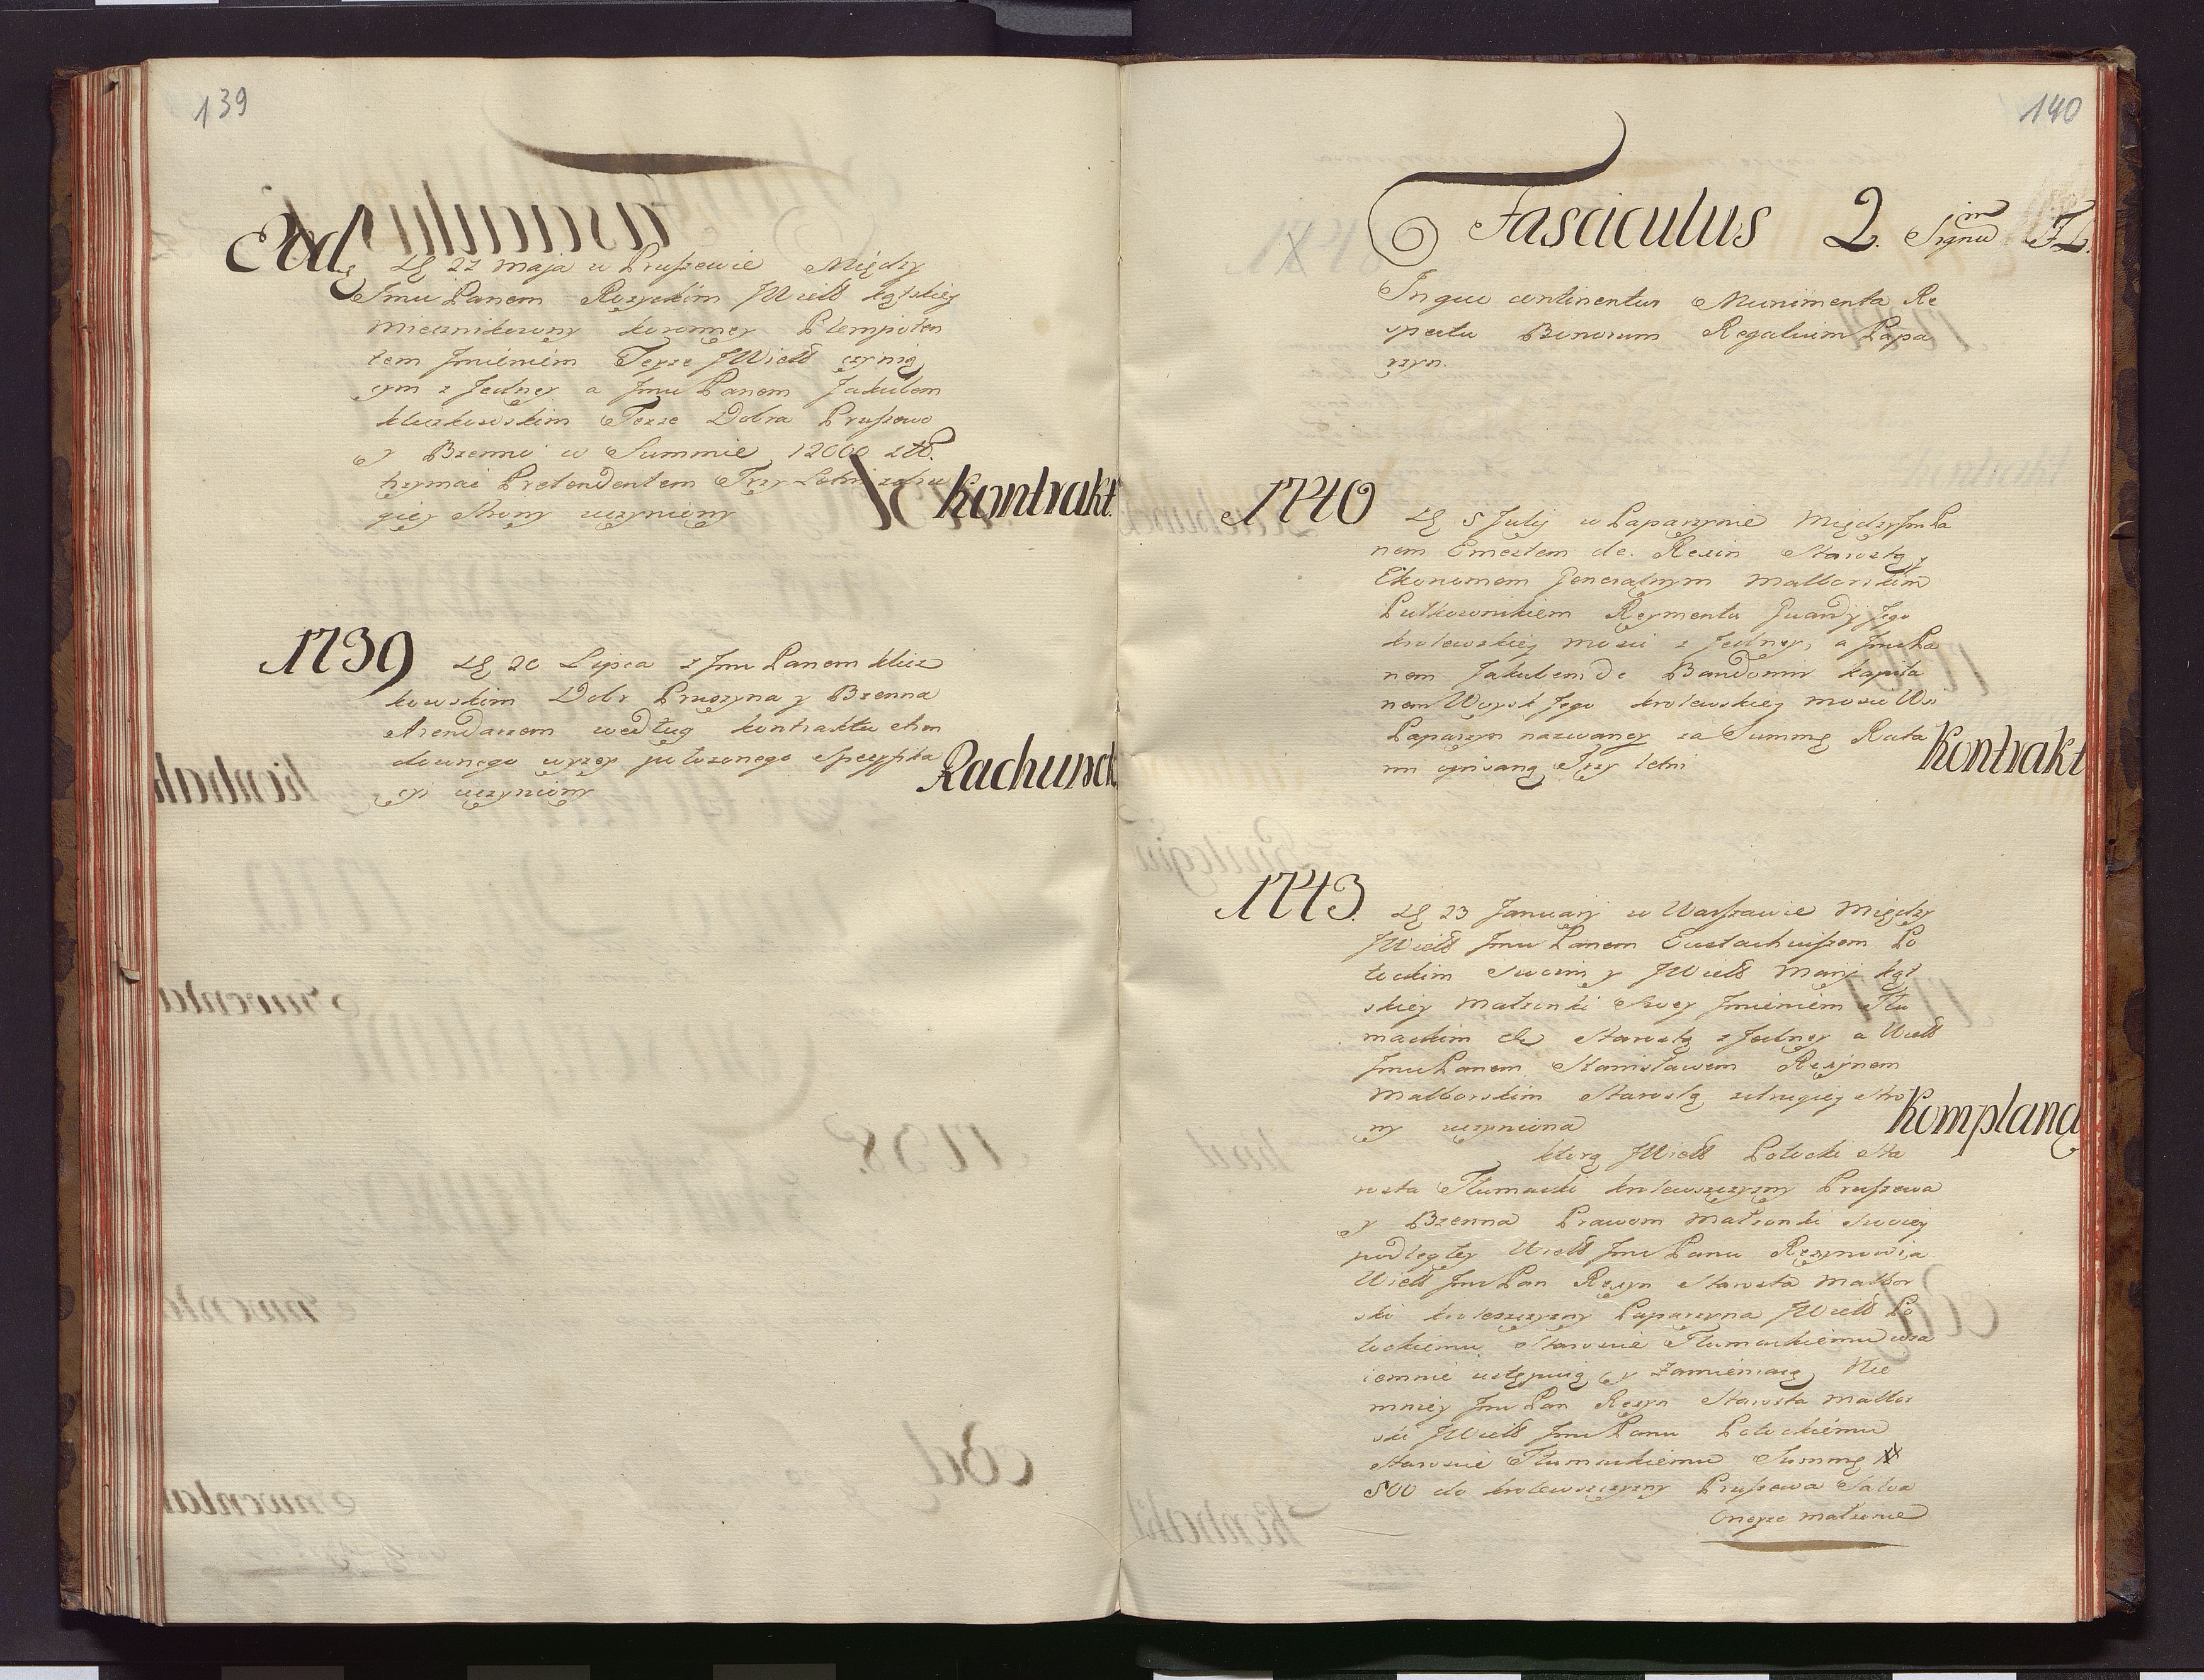 139
Eod
Dḡ 22 maja w Pruszewie Między
Jmu Panem Rozyckim JWielb kątskiey
Miecznikowny koronney Plenipoten
tem Jmieniem Teyze JWielb czynią
cym z Jedney a Jmu Panem Jakubem
kliczkowskim Tezze Dobra Pruszewo
y Brenni w Summie 12000 ztt.
trzymac Pretendentem Trzy Letni zdru
giey Strony uczyniony
kontrakt
1739
Dḡ 20 Lipca z Jmu Panem klicz
kowskim Dobr Pruszyna y Brzenna
Arendarzem według kontraktu
downego wyzey położonego Specyfika
cyi uczyniony
Rachunek
140
Fasciculus 2. Signū F2.
Inquo continentur Munimenta Re
spectu Bonorum Regalium Papa
rzyn.
1740
Dḡ 5 Julij w Paparzynie Między Jmu Pa
nem Ernestem de. Rexin Starostą
Ekonomem Jeneralnym Malborskim
Pułkownikiem Reymentu Guardy Jego
krolewskiey mosci z Jedney, a Jmu Pa
nem Jakubem de Bandomir kapita
nem Woysk Jego krolewskiey mosci Wsi
Paparzyn nazwaney za Summę Rata
mi opisaną Trzy letni
kontrakt
1743.
Dḡ 23 January w Warszawie Między
JWielb Jmu Panem Eustachiuszem Po
tockim Swoim y JWielb Maryi kąt
skiey Małzonki Swey Jmieniem Tłu
mackim &c Starostą z Jedney a Wielb
Jmu Panem Stanisławem Rexynem
Malborskim Starostą zdrugiey stro
ny uczyniona
komplana
ktorą JWielb Potocki Sta
rosta Tłumacki krolewszczyzny Pruszewa
y Brzenna Prawom Małzonki Swoiey
podległey Wielb Jmu Panu Rexynowi, a
Wielb Jmu Pan Rexyn Starosta Malbor
ski kroleszczyzny Paparzyna JWielb Po
tockiemu Staroscie Tłumackiemu wza
iemnie ustępuią y Zamieniaią Nie
mniey Jmu Pan Rexyn Starosta Malbor
ski JWielb Jmu Panu Potockiemu
Staroscie Tłumackiemu Summę #
500 do krolewszczyzny Pruszewa Salva
Oneyze małzonce